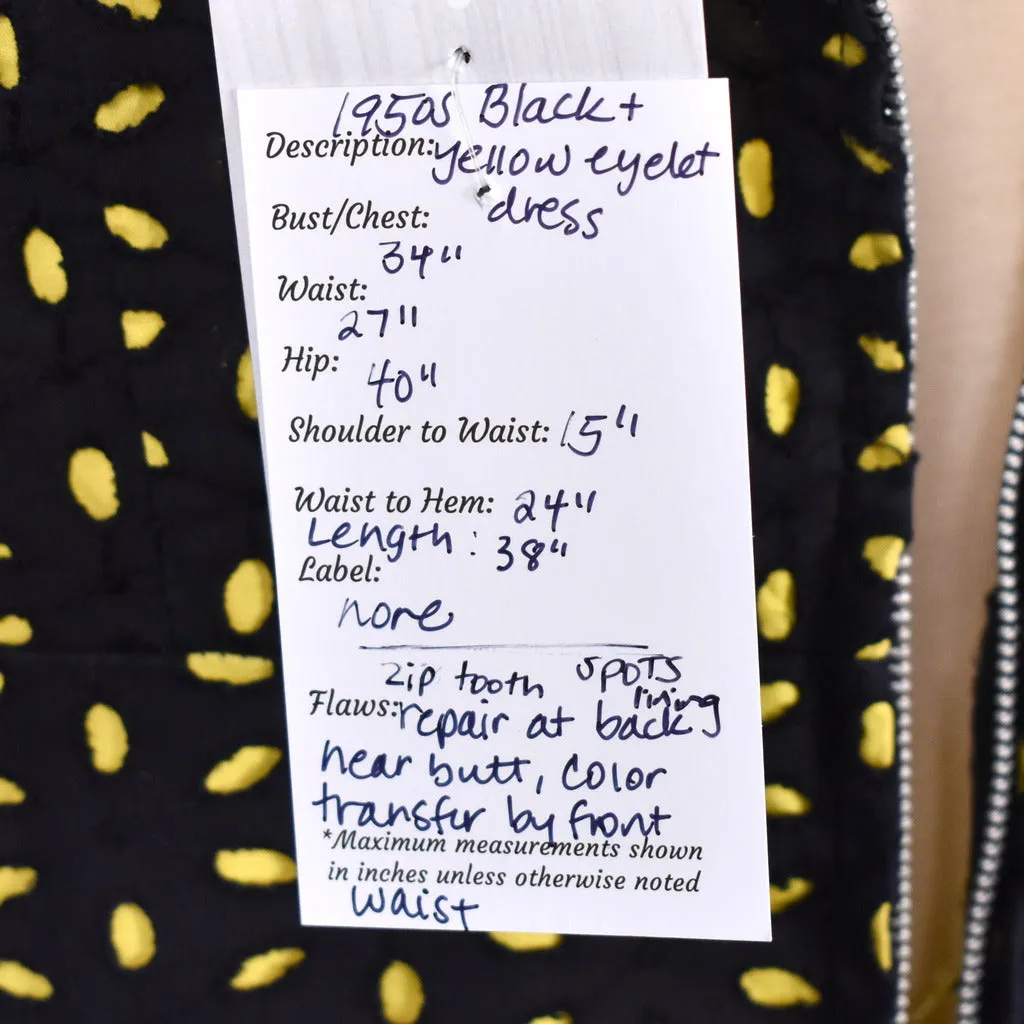 1950s Black +
Description: yellow eyelet
dress
Bust/Chest:
34"
Waist:
27"
Hip:
40"
Shoulder to Waist: 15"
Waist to Hem: 24"
Length: 38"
Label:
none
zip tooth spots
lining
Flaws: repair at back
near butt, color
transfer by front
*Maximum measurements shown
in inches unless otherwise noted
waist